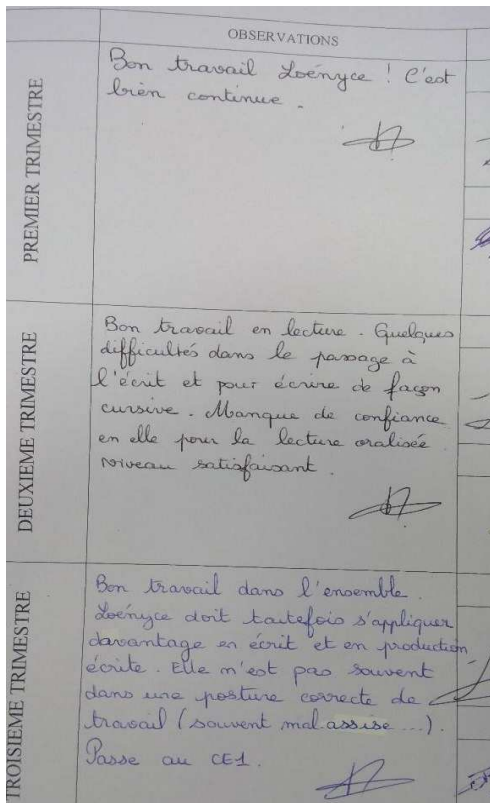 OBSERVATIONS
PREMIER TRIMESTRE
Bon travail Loényce ! C'est
bien continue .
DEUXIEME TRIMESTRE
Bon travail en lecture . Quelques
difficultés dans le passage à
l'écrit et pour écrire de façon
cursive . Manque de confiance
en elle pour la lecture oralisée
niveau satisfaisant .
TROISIEME TRIMESTRE
Bon travail dans l'ensemble .
Loényce doit toutefois s'appliquer
davantage en écrit et en production
écrite . Elle n'est pas souvent
dans une posture correcte de
travail (souvent mal assise ...) .
Passe au CE1 .